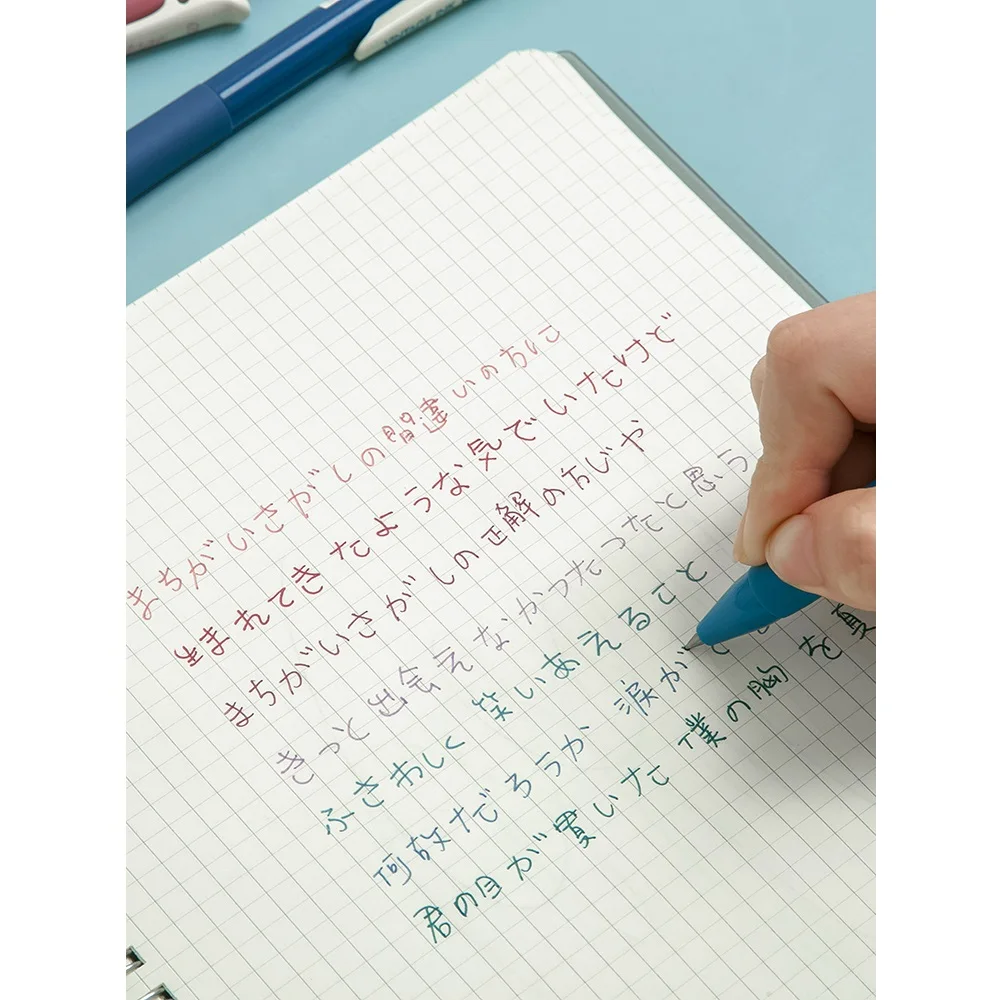 VINTAGE INK
まちがいさがしの間違いの方に
生まれてきたような気でいたけど
まちがいさがしの正解の方じゃ
きっと出会えなかったったと思う
ふさわしく 笑いあえること
何故だろうか 涙が
君の目が貫いた 僕の胸を真